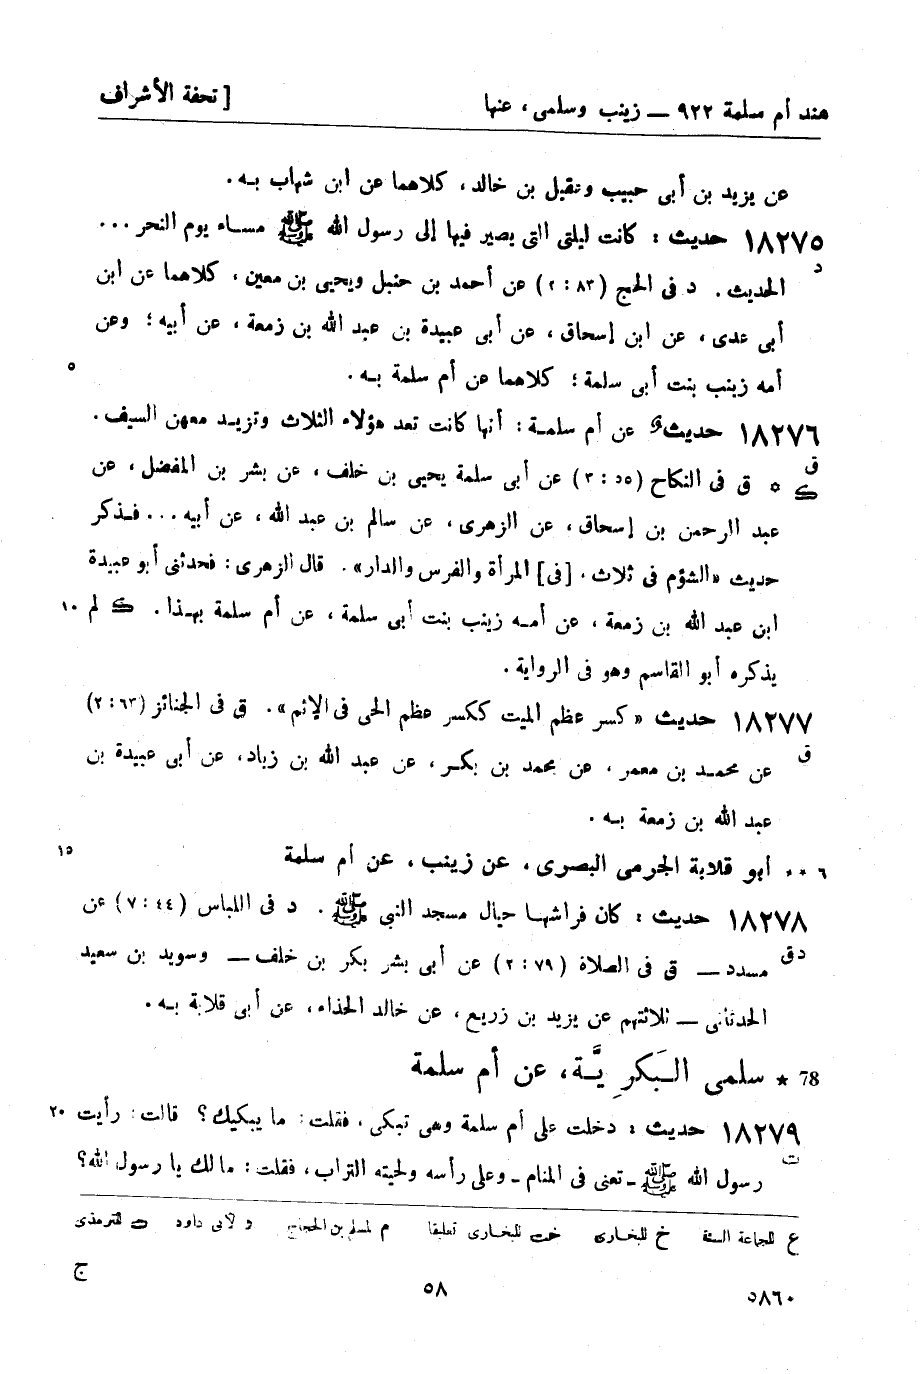 هند أم سلمة ٩٢٢ — زينب وسلمى ، عنها [ تحفة الأشراف
عن يزيد بن أبى حبيب وعقيل بن خالد، كلاهما عن ابن شهاب بـه .
١٨٢٧٥ حديث : كانت ليلتى التى يصير فيها إلى رسول الله ﷺ مساء يوم النحر ...
د
الحديث . د فى الحج (٨٣ : ٢) عن أحمد بن حنبل ويحيى بن معين ، كلاهما عن ابن
أبى عدى ، عن ابن إسحاق ، عن أبى عبيدة بن عبد الله بن زمعة ، عن أبيه ؛ وعن
أمه زينب بنت أبى سلمة ؛ كلاهما عن أم سلمة بـه . ٥
١٨٢٧٦ حديث عن أم سلمـة : أنها كانت تعد هؤلاء الثلاث وتزيـد معهن السيف .
ق
ك * ق فى النكاح (٥٥ : ٣) عن أبى سلمة يحيى بن خلف ، عن بشر بن المفضل ، عن
عبد الرحمن بن إسحاق ، عن الزهرى ، عن سالم بن عبد الله ، عن أبيه ... فـذكر
حديث «الشؤم فى ثلاث . [فى] المرأة والفرس والدار» . قال الزهرى : فحدثنى أبو عبيدة
ابن عبد الله بن زمعة ، عن أمـه زينب بنت أبى سلمة ، عن أم سلمة بهـذا . ك لم ١٠
يذكره أبو القاسم وهو فى الرواية .
١٨٢٧٧ حديث «كسر عظم الميت ككسر عظم الحى فى الإثم» . ق فى الجنائز (٦٣ : ٢)
ق
عن محمـد بن معمر ، عن محمد بن بكـر ، عن عبد الله بن زياد، عن أبى عبيدة بن
عبد الله بن زمعة بـه .
٦ ** أبو قلابة الجرمى البصرى ، عن زينب ، عن أم سلمة ١٥
١٨٢٧٨ حديث : كان فراشهـا حيال مسجد النبى ﷺ . د فى اللباس (٤٤ : ٧) عن
دق
مسدد — ق فى الصلاة (٧٩ : ٢) عن أبى بشر بكر بن خلف — وسويد بن سعيد
الحدثانى — ثلاثتهم عن يزيد بن زريع ، عن خالد الحذاء، عن أبى قلابة بـه .
78 ★ سلمى البَكرِيَّـة، عن أم سلمة
١٨٢٧٩ حديث : دخلت على أم سلمة وهى تبكى ، فقلت : ما يبكيك ؟ قالت : رأيت ٢٠
ت
رسول الله ﷺ ـ تعنى فى المنام ـ وعلى رأسه ولحيته التراب ، فقلت : مالك يا رسول الله ؟
ع للجماعة الستة خ للبخارى خت للبخارى تعليقا م لمسلم بن الحجاج د لأبى داود ت للترمذى
ج
٥٨٦٠ ٥٨